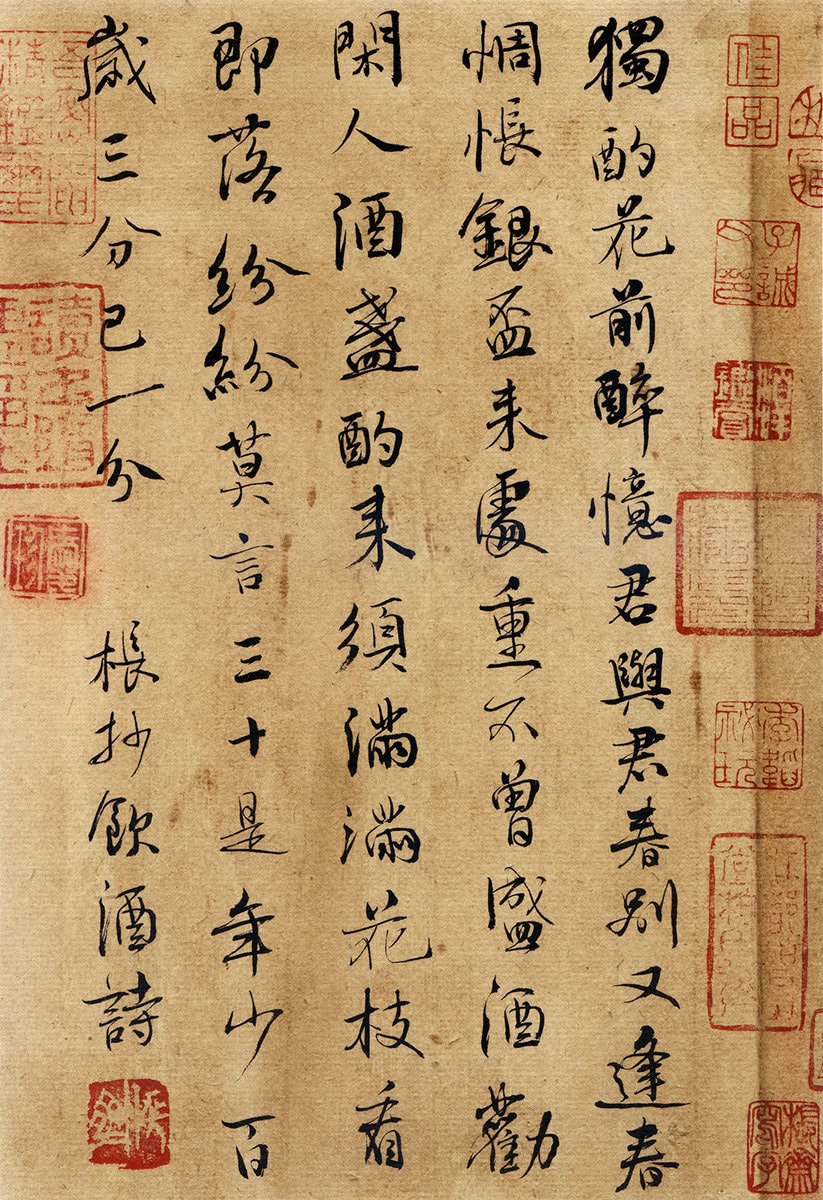 佳品
獨酌花前醉憶君與君春別又逢春
惆悵銀盃来處重不曾盛酒勸
閑人酒盞酌来須滿滿花枝看
即落紛紛莫言三十是年少百
歲三分已一分 棖抄飲酒詩